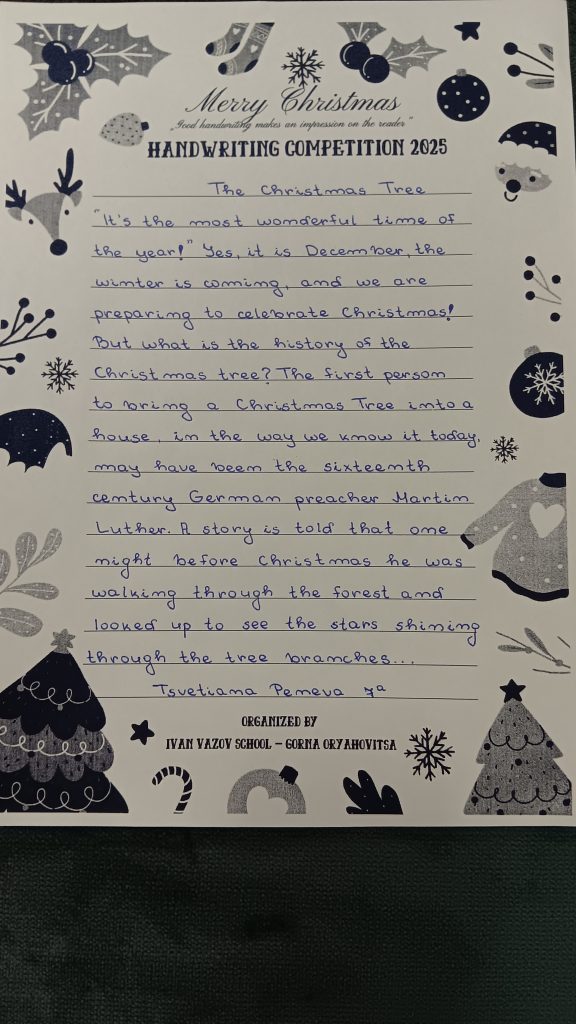 Merry Christmas
„Good handwriting makes an impression on the reader"
HANDWRITING COMPETITION 2025
The Christmas Tree
"It's the most wonderful time of
the year!" Yes, it is December, the
winter is coming, and we are
preparing to celebrate Christmas!
But what is the history of the
Christmas tree? The first person
to bring a Christmas Tree into a
house, in the way we know it today,
may have been the sixteenth
century German preacher Martin
Luther. A story is told that one
night before Christmas he was
walking through the forest and
looked up to see the stars shining
through the tree branches...
Tsvetiana Peneva 7a
ORGANIZED BY
IVAN VAZOV SCHOOL – GORNA ORYAHOVITSA